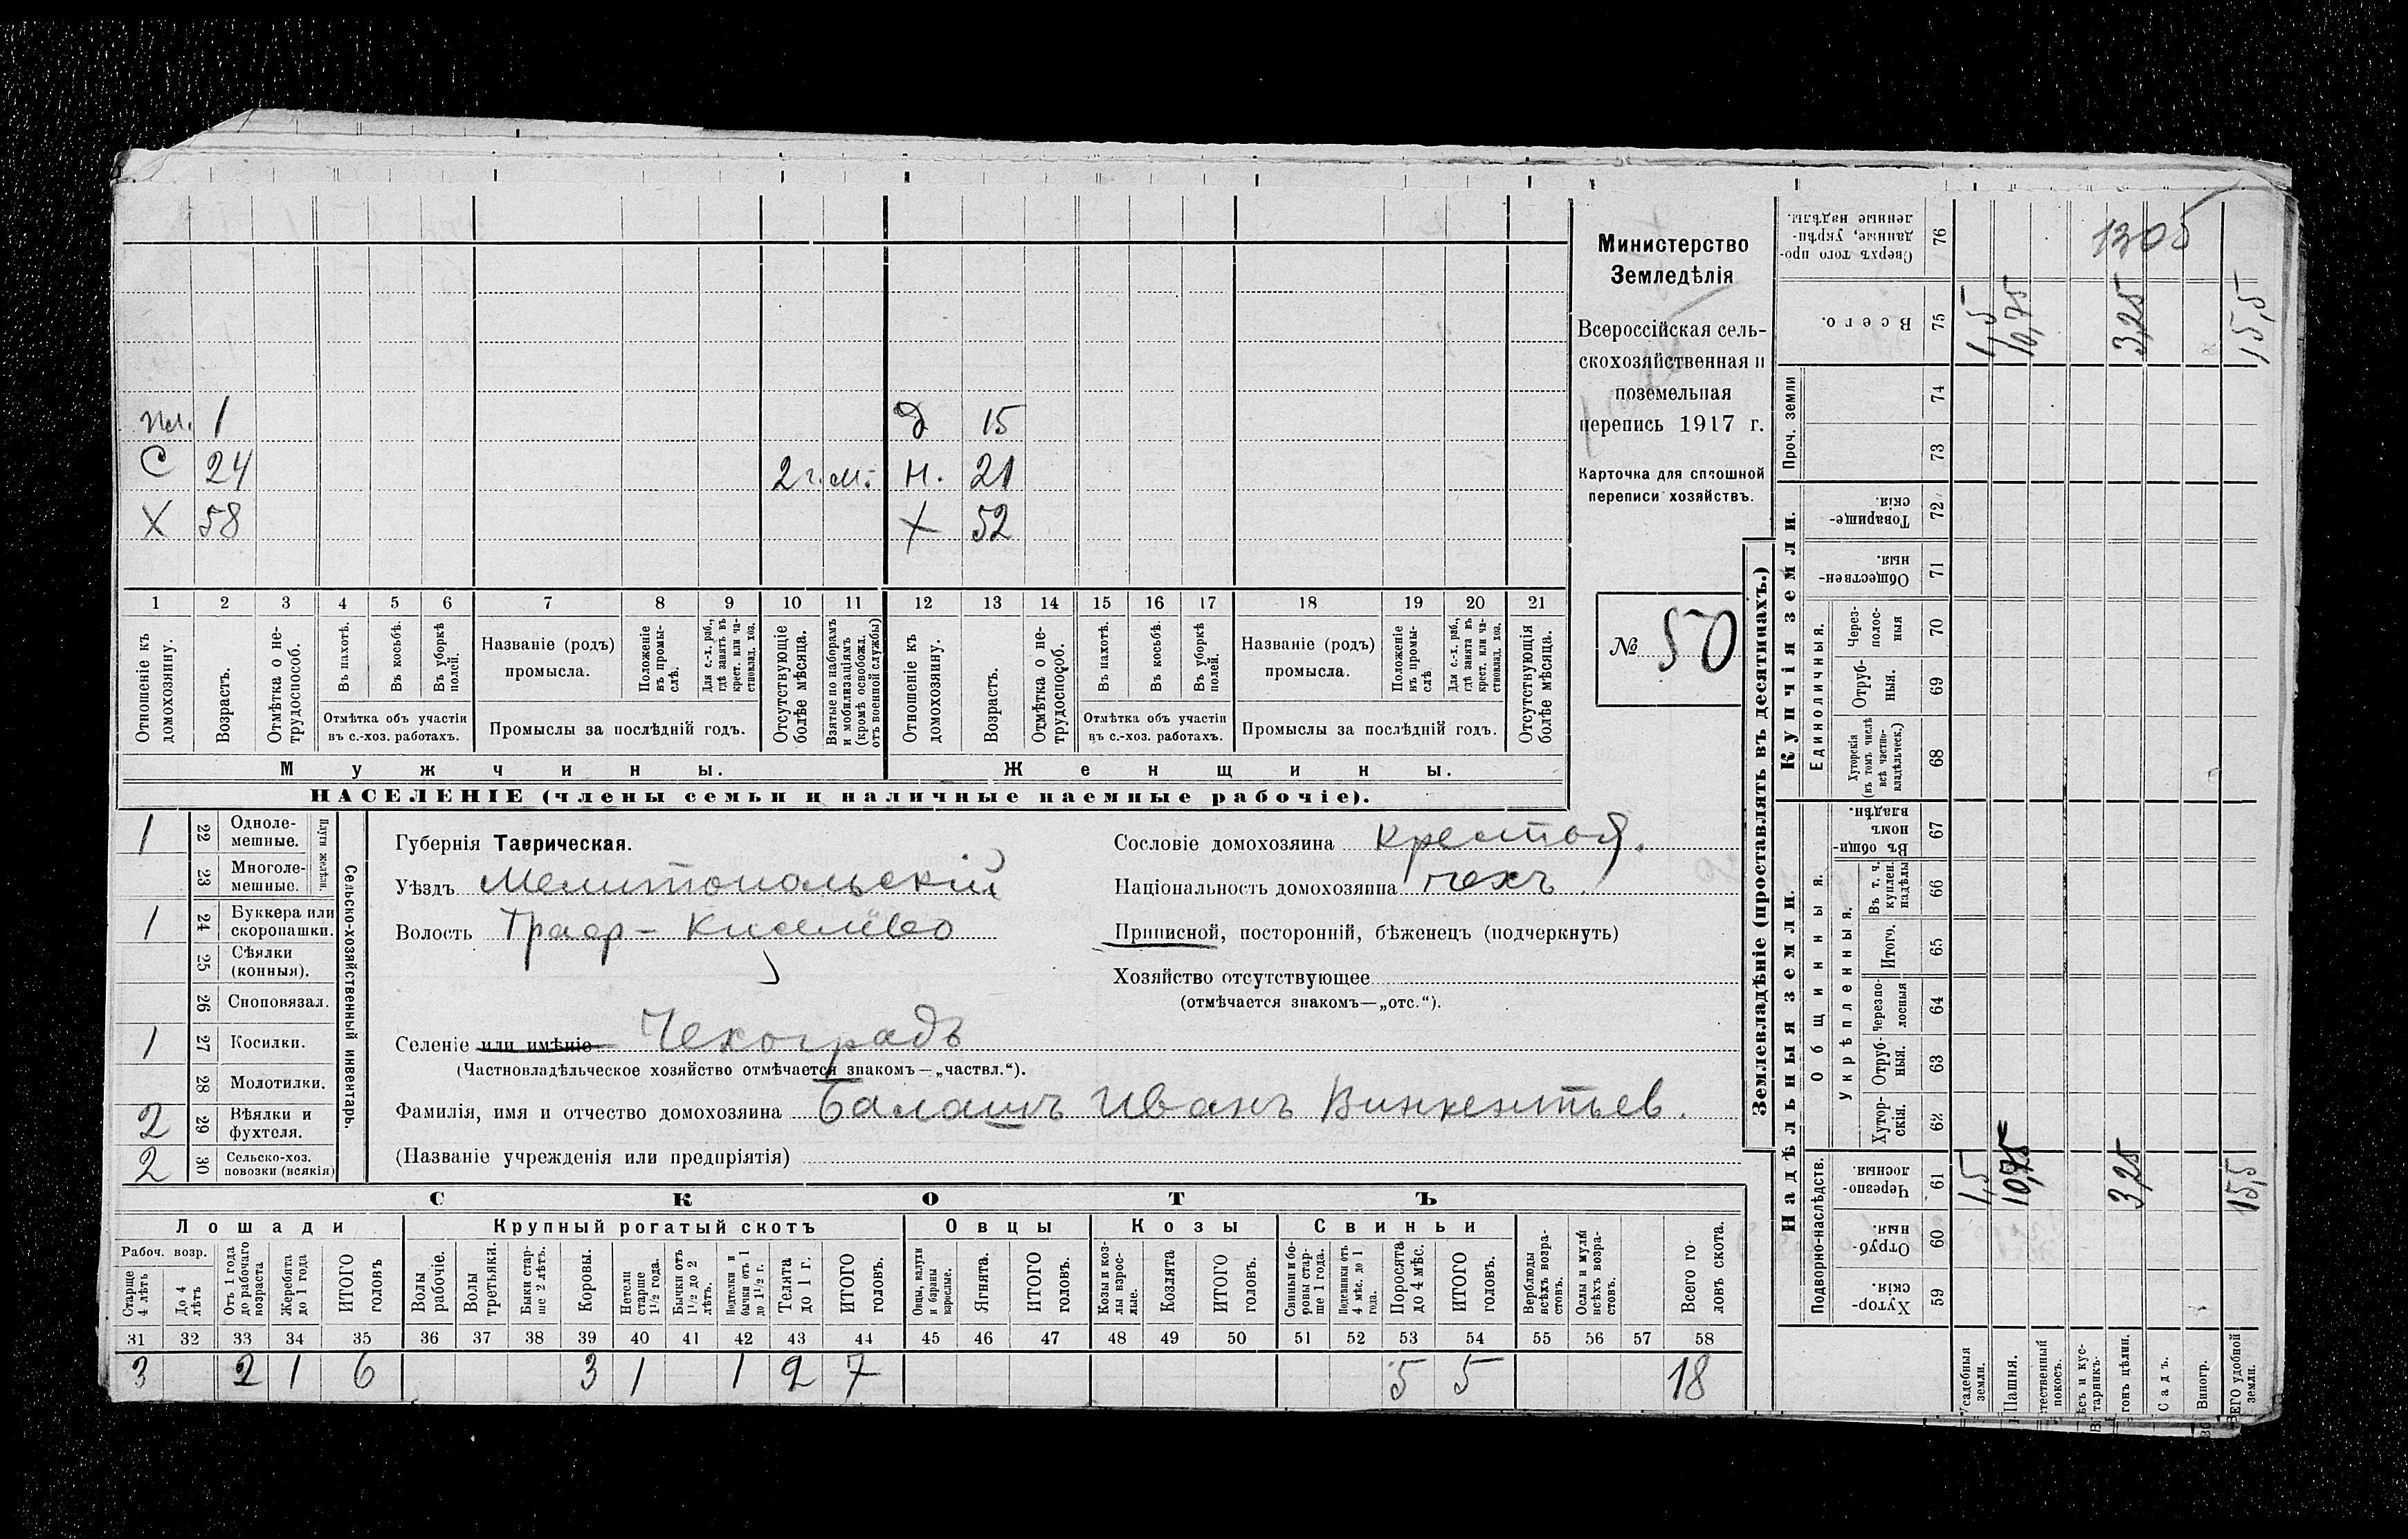 Министерство
Земледѣлія
Всероссійская сель-
скохозяйственная и
поземельная
перепись 1917 г.
Карточка для сплошной
переписи хозяйствъ.
№ 50
пл. 1
Д 15
С 24 2 г. м. н. 21
Х 58 Х 52
1 2 3 4 5 6 7 8 9 10 11 12 13 14 15 16 17 18 19 20 21
Отношеніе къ домохозяину.
Возрастъ.
Отмѣтка о не-трудоспособ.
Въ пахотѣ.
Въ косьбѣ.
Въ уборкѣ полей.
Отмѣтка объ участіи
въ с.-хоз. работахъ.
Названіе (родъ)
промысла.
Положеніе въ промы-слѣ.
Для с.-х. раб., гдѣ занятъ въ крест. или ча-стновлад. хоз.
Промыслы за послѣдній годъ.
Отсутствующіе болѣе мѣсяца.
Взятые по наборамъ и мобилизаціямъ (кромѣ освобожд. отъ военной службы)
Отношеніе къ домохозяину.
Возрастъ.
Отмѣтка о не-трудоспособ.
Въ пахотѣ.
Въ косьбѣ.
Въ уборкѣ полей.
Отмѣтка объ участіи
въ с.-хоз. работахъ.
Названіе (родъ)
промысла.
Положеніе въ промы-слѣ
Для с.-х. раб., гдѣ занята въ крест. или ча-стновлад. хоз.
Промыслы за послѣдній годъ.
Отсутствующія болѣе мѣсяца.
Мужчины. Женщины.
НАСЕЛЕНІЕ (члены семьи и наличные наемные рабочіе).
Сельско-хозяйственный инвентарь.
Плуги желѣзн.
1 22 Одноле-мешные.
23 Многоле-мешные.
1 24 Буккера или скоропашки.
25 Сѣялки (конныя).
26 Сноповязал.
1 27 Косилки.
28 Молотилки.
2 29 Вѣялки и фухтеля.
2 30 Сельско-хоз. повозки (всякія)
Губернія Таврическая.
Уѣздъ Мелитопольскій
Волость
Сословіе домохозяина крестья.
Національность домохозяина чехъ
Приписной, посторонній, бѣженецъ (подчеркнуть)
Хозяйство отсутствующее
(отмѣчается знакомъ—„отс.“).
Селеніе или имѣніе Чехоградъ
(Частновладѣльческое хозяйство отмѣчается знакомъ—„частвл.“).
Фамилія, имя и отчество домохозяина Балашъ Иванъ Винкентьев.
(Названіе учрежденія или предпріятія)
СКОТЪ
Лошади Крупный рогатый скотъ Овцы Козы Свиньи
Рабоч. возр.
Старше 4 лѣтъ
До 4 лѣтъ
Отъ 1 года до рабочаго возраста
Жеребята до 1 года
ИТОГО головъ
Волы рабочіе.
Волы третьяки.
Быки стар-ше 2 лѣтъ.
Коровы.
Нетели старше 1½ года.
Бычки отъ 1½ до 2 лѣтъ.
Подтелки и бычки отъ 1 до 1½ г.
Телята до 1 г.
ИТОГО головъ.
Овцы, валухи и бараны взрослые.
Ягнята.
ИТОГО головъ.
Козы и коз-лы взрос-лые.
Козлята
ИТОГО головъ.
Свиньи и бо-ровы стар-ше 1 года.
Подсвинки отъ 4 мѣс. до 1 года.
Поросята до 4 мѣс.
ИТОГО головъ.
Верблюды всѣхъ возра-стовъ.
Ослы и мулы всѣхъ возра-стовъ.
Всего го-ловъ скота.
31 32 33 34 35 36 37 38 39 40 41 42 43 44 45 46 47 48 49 50 51 52 53 54 55 56 57 58
3 2 1 6 3 1 1 2 7 5 5 18
Землевладѣніе (проставлять въ десятинахъ.)
Надѣльныя земли. Купчія земли. Проч. земли
Подворно-наслѣдств.
Общинныя.
Укрѣпленныя.
Единоличныя.
59 Хутор-скія.
60 Отруб-ныя.
61 Черезпо-лосныя.
62 Хутор-скія.
63 Отруб-ныя.
64 Черезпо-лосныя
65 Итого.
66 Въ т. ч. куплен. надѣлы
67 Въ общи-номъ владѣн.
68 Хуторскія (въ томъ числѣ всѣ частно-владѣльческ.)
69 Отруб-ныя.
70 Через-полос-ныя
71 Обществен-ныя.
72 Товарище-скія.
73
74
75 Всего.
76 Сверхъ того про-данные, укрѣп-ленные надѣлы.
садебныя земли. 1,5 1,5
Пашня. 10,75 10,75
тественный покосъ.
ѣсъ и кус-тарникъ.
гонъ цѣлин. 3,25 3,25
Садъ.
Виногр.
ВСЕГО удобной земли. 15,5 15,5
1305